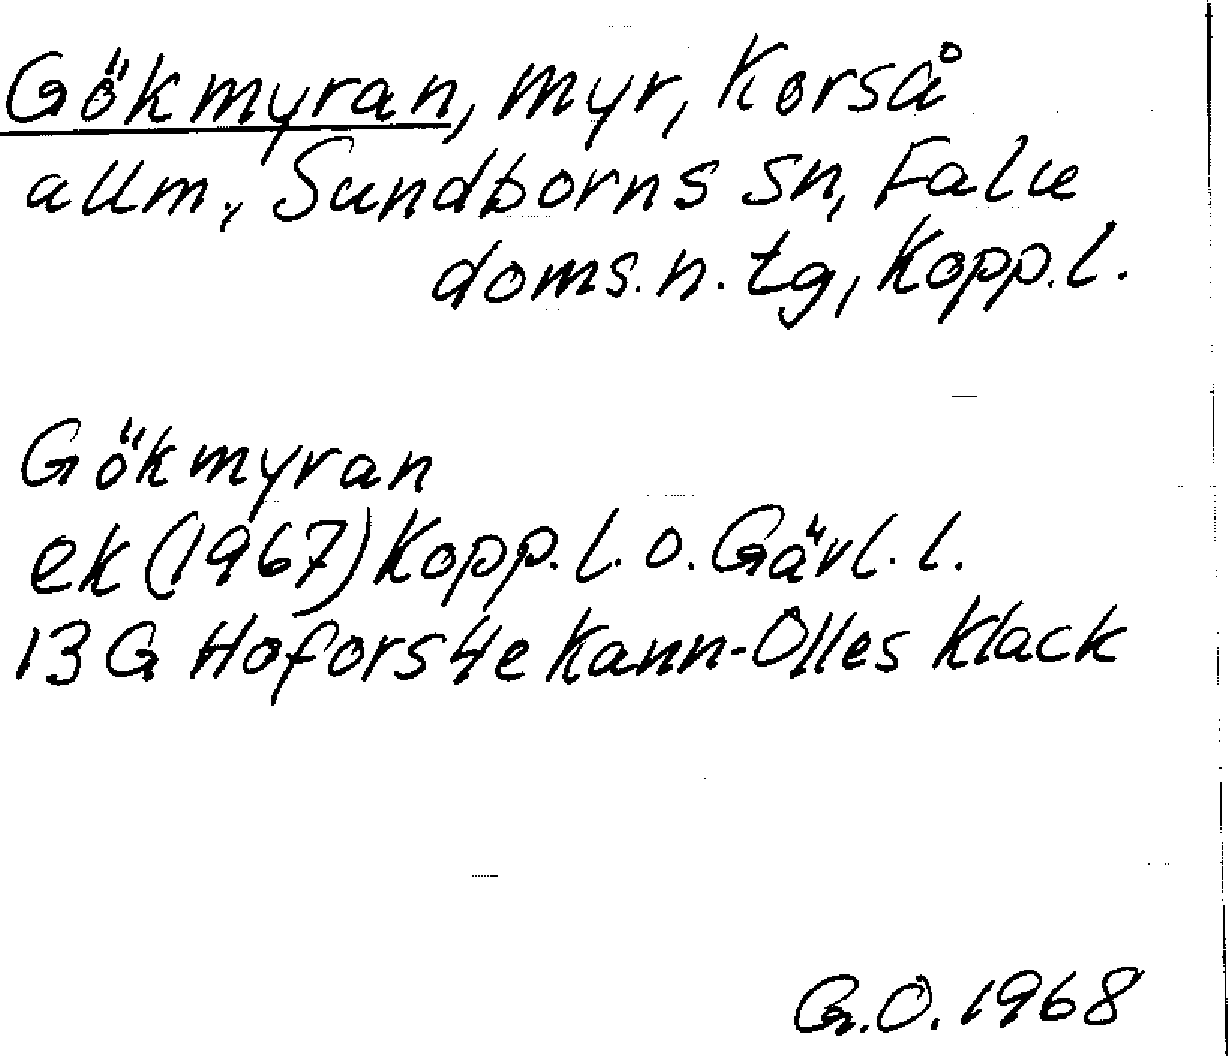 Gökmyran, myr, Korså
allm., Sundborns sn, Falu
doms.n. tg, Kopp. l.
Gökmyran
ek (1967) Kopp. l. o. Gävl. l.
13 G Hofors 4e Kann-Olles Klack
G.O. 1968